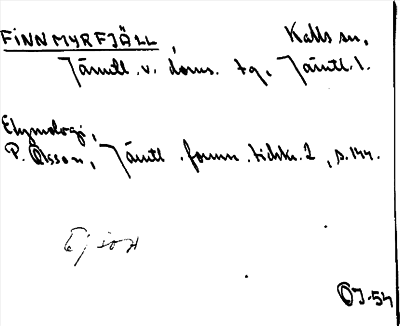 FINNMYRFJÄLL, Kalls sn.
Jämtl. v. doms. tg. Jämtl. l.
Etymologi,
P. Olsson, Jämtl. fornm. tidskr. 2, s. 144.
Ej
OJ-54